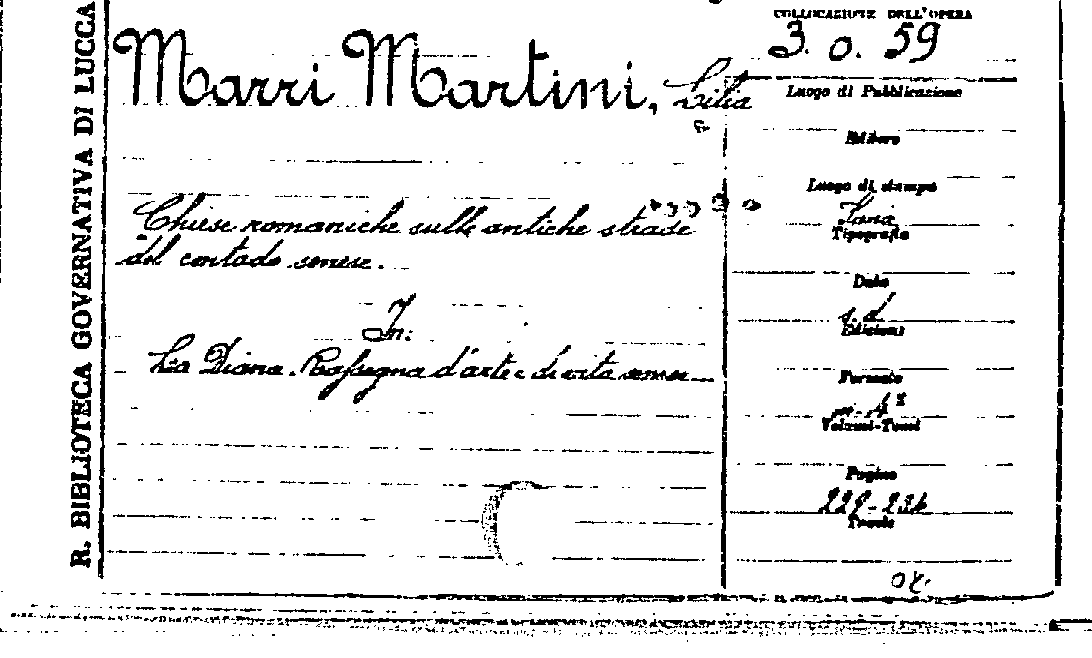 R. BIBLIOTECA GOVERNATIVA DI LUCCA
Marri Martini, Lilia
Chiese romaniche sulle antiche strade
del contado senese.
In:
La Diana. Rassegna d'arte e di vita senese
COLLOCAZIONE DELL'OPERA
3. o. 59
Luogo di Pubblicazione
Editore
Luogo di stampa
Tipografia
Data
s.d.
Edizione
Formato
in-4º
Volumi-Tomi
Pagine
Tavole